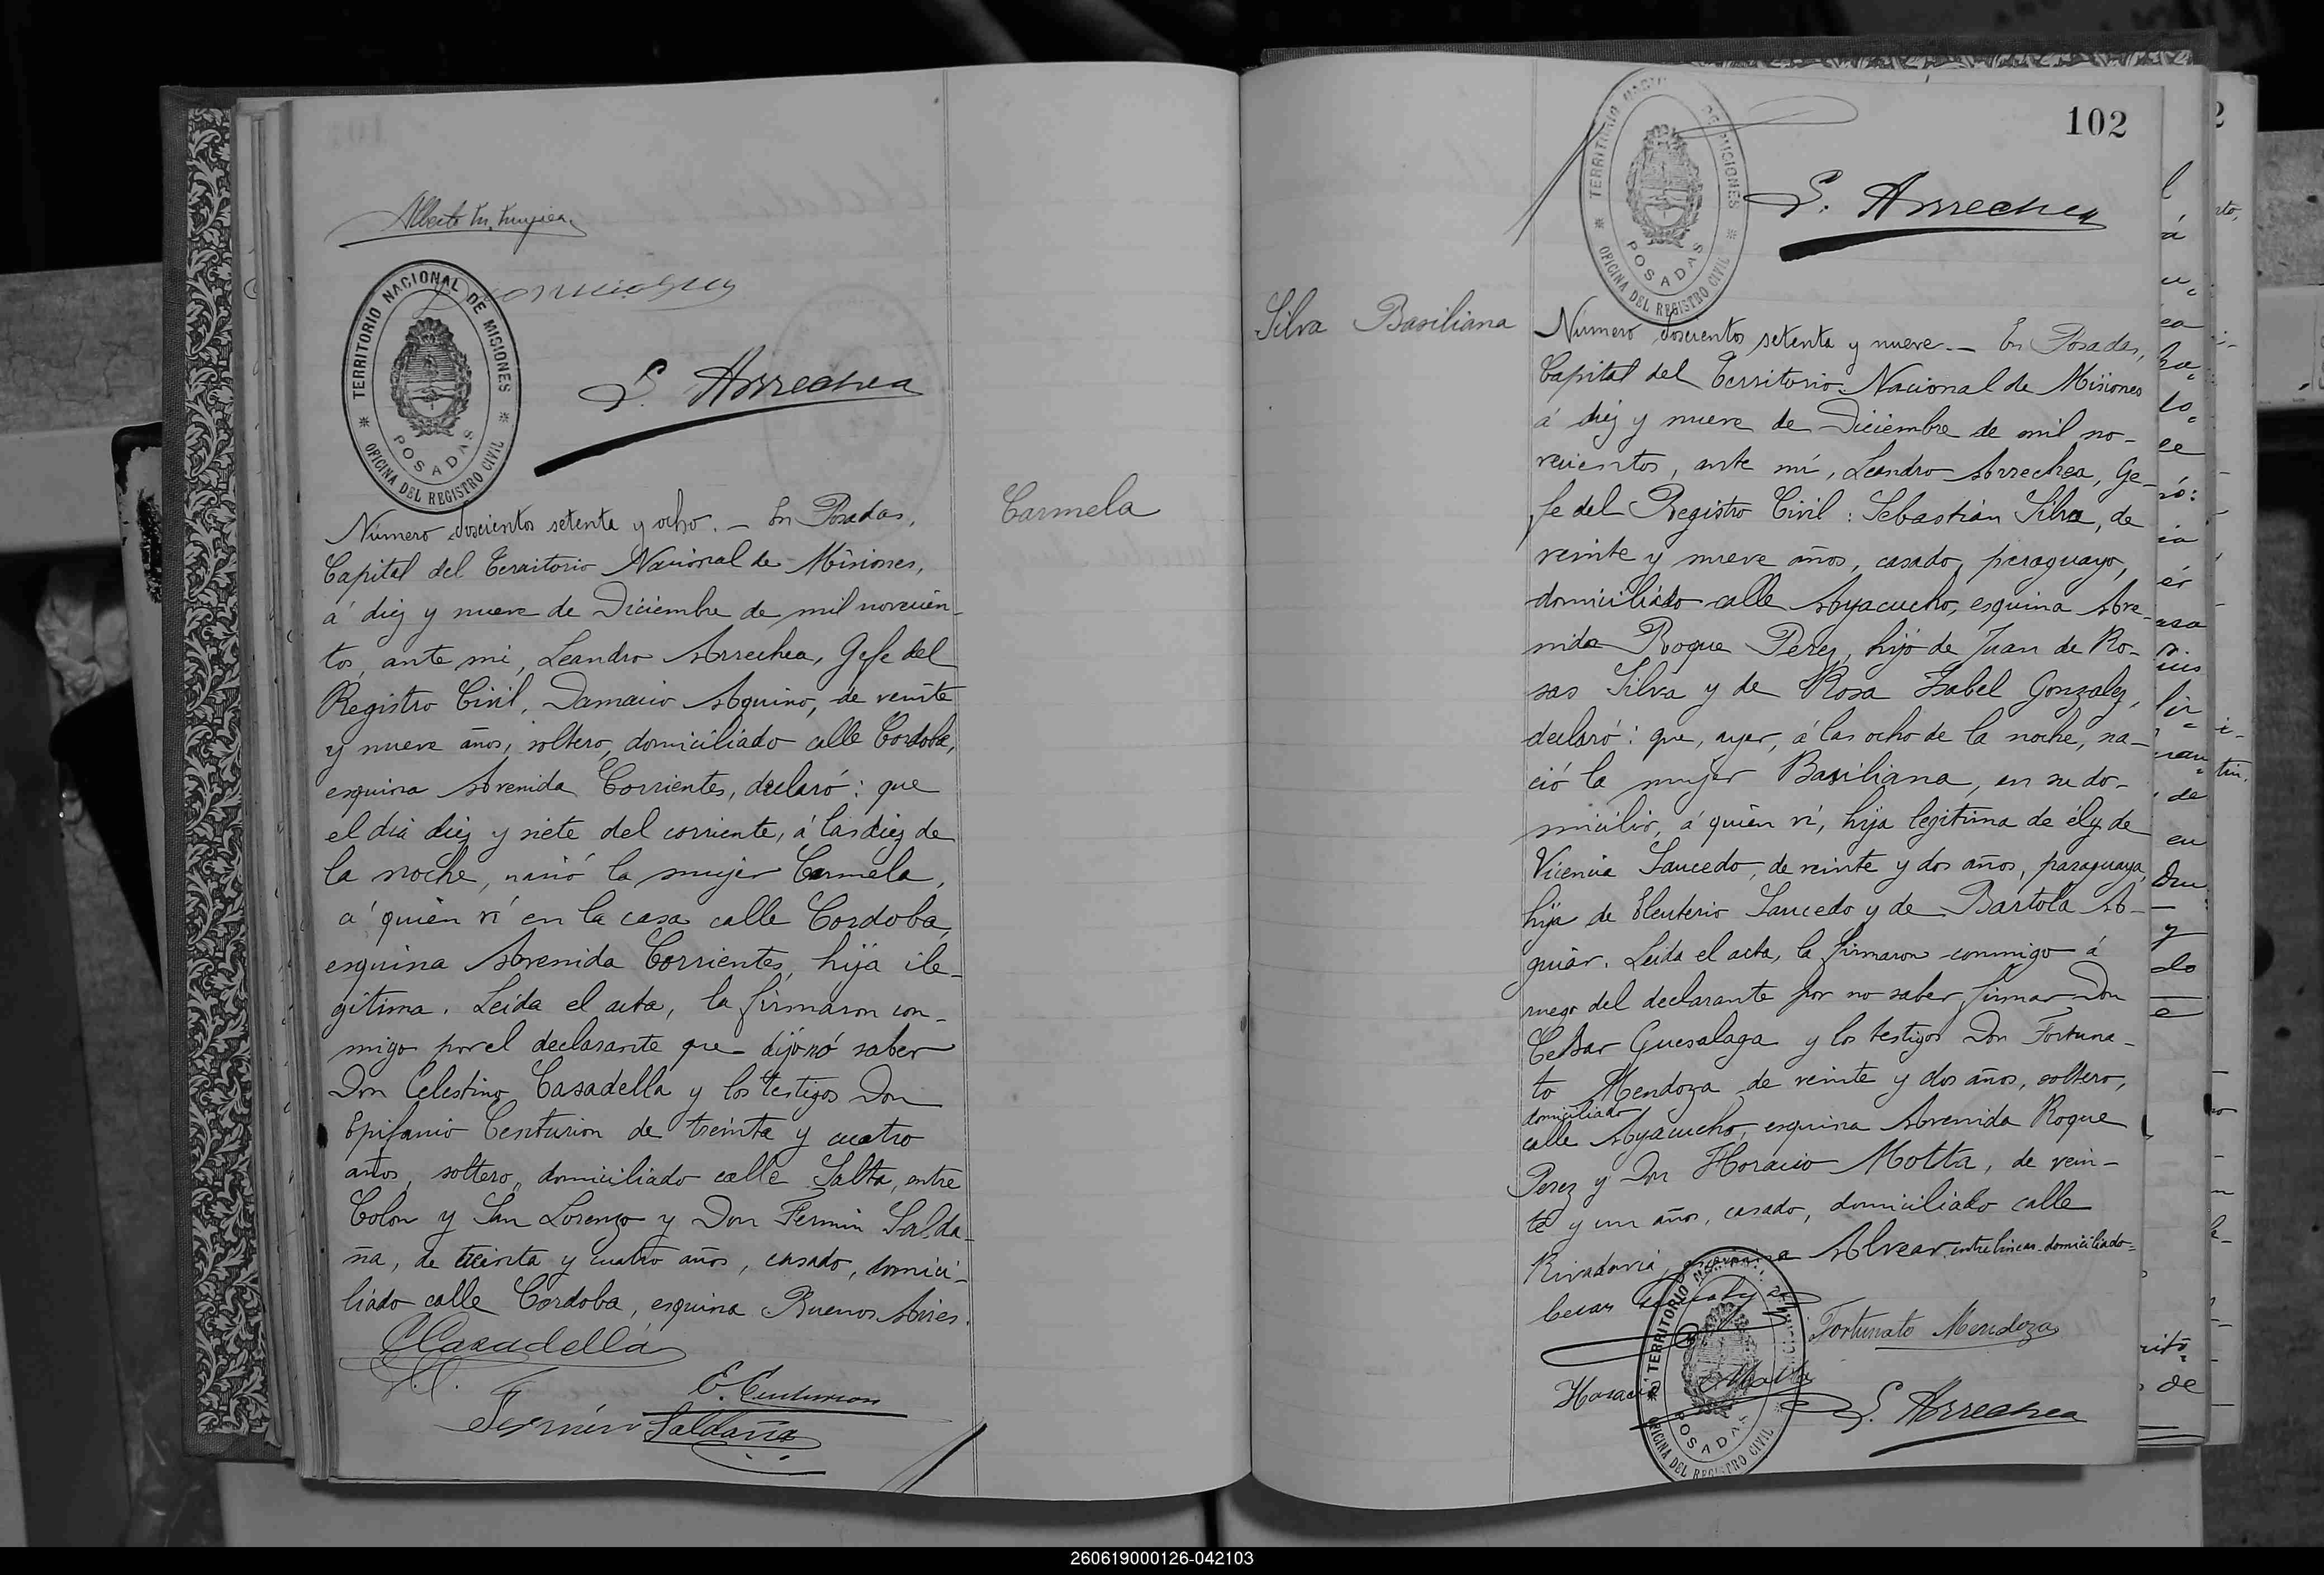 Alberto M. Mujica
TERRITORIO NACIONAL DE MISIONES
POSADAS
OFICINA DEL REGISTRO CIVIL
L. Arrechea
Número doscientos setenta y ocho. — En Posadas,
Capital del Territorio Nacional de Misiones,
á diez y nueve de Diciembre de mil novecien-
tos, ante mi, Leandro Arrechea, Gefe del
Registro Civil, Damacio Aquino, de veinte
y nueve años, soltero, domiciliado calle Cordoba,
esquina Avenida Corrientes, declaró: que
el dia diez y siete del corriente, á las diez de
la noche, nació la mujer Carmela,
a' quién ví en la casa calle Cordoba,
esquina Avenida Corrientes, hija ile-
gitima. Leida el acta, la firmaron con-
migo por el declarante que dijo nó saber
Don Celestino Casadella y los testigos Don
Epifanio Centurion de treinta y cuatro
años, soltero, domiciliado calle Salta, entre
Colon y San Lorenzo y Don Fermin Salda-
ña, de treinta y cuatro años, casado, domici-
liado calle Cordoba, esquina Buenos Aires.
CCasadella
E. Centurion
Fermín Saldaña
Carmela
102
TERRITORIO NACIONAL DE MISIONES
POSADAS
OFICINA DEL REGISTRO CIVIL
L. Arrechea
Silva Basiliana
Número doscientos setenta y nueve. — En Posadas,
Capital del Territorio Nacional de Misiones
á diez y nueve de Diciembre de mil no-
vecientos, ante mí, Leandro Arrechea, Ge-
fe del Registro Civil: Sebastián Silva, de
veinte y nueve años, casado, paraguayo,
domiciliado calle Ayacucho, esquina Ave-
nida Roque Perez, hijo de Juan de Ro-
sas Silva y de Rosa Isabel Gonzalez,
declaró: que, ayer, á las ocho de la noche, na-
ció la mujer Basiliana, en su do-
micilio, á quién ví, hija legitima de él y de
Vicencia Saucedo, de veinte y dos años, paraguaya,
hija de Eleuterio Saucedo y de Bartola A-
guiar. Leida el acta, la firmaron conmigo á
ruego del declarante por no saber firmar Don
Cesar Guesalaga y los testigos Don Fortuna-
to Mendoza de veinte y dos años, soltero,
domiciliado
calle Ayacucho, esquina Avenida Roque
Perez y Don Horacio Motta, de vein-
te y un años, casado, domiciliado calle
Rivadavia, esquina Alvear. entre lineas-domiciliado=
Cesar Guesalaga
Fortunato Mendoza
Horacio Motta
TERRITORIO NACIONAL DE MISIONES
POSADAS
OFICINA DEL REGISTRO CIVIL
L. Arrechea
260619000126-042103